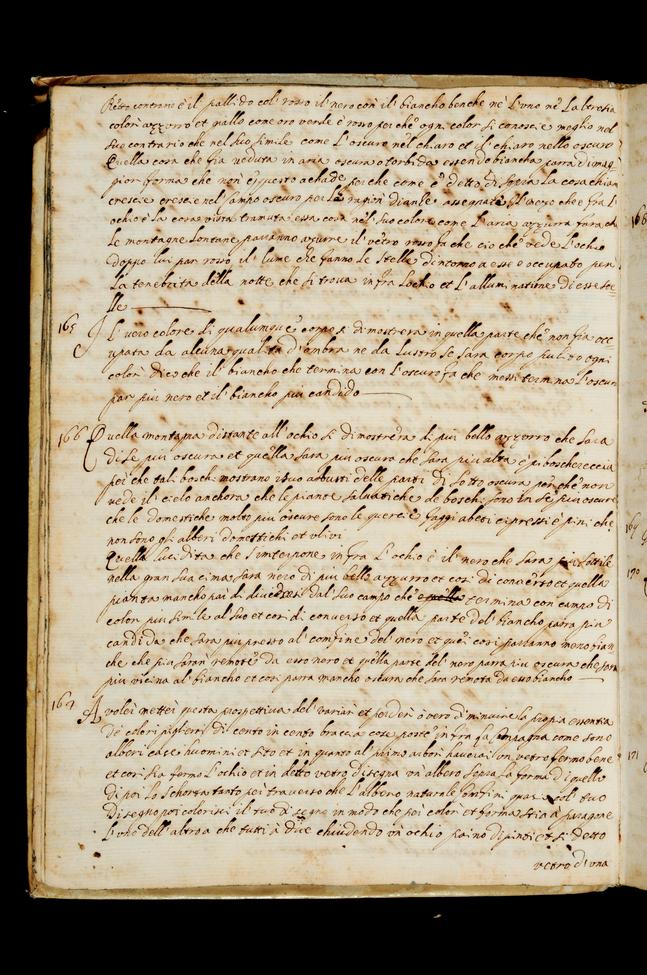 Retto contrario è il pallido col' rosso il nero con il biancho benche nè l'uno nè la
colori azzurro et giallo come oro verde è rosso perche ogni color si conoscie meglio nel
suo contrario che nel suo simile come l'oscuro nel chiaro et il chiaro nello oscuro
Quella cosa che fia veduta in aria oscura o torbida essendo biancha parra di mag
gior forma che non è questo achade perche come è detto di sopra la cosa chiara
crescie crescie nel campo oscuro per le ragioni dianzi assegnate il mezo che è fra l
ochio è la cosa vista tramuta essa cosa nel suo colore come l'aria azzurra fara ch
le montagne lontane parranno azzurre il vetro rosso fa che cio che vede l'ochio
doppo lui par rosso il lume che fanno le stelle dintorno a esse è occupato per
la tenebrita della notte che si trova infra l'ochio et l'alluminatione di esse ste
lle
165 Il vero colore di qualunque corpo si dimostrera in quella parte che non fia occ
upata da alcuna qualita d'ombra ne da lustro se sara corpo pulito ogni
color. Dico che il biancho che termina con l'oscuro fa che in essi termini l'oscuro
par piu nero et il biancho piu candido
166 Quella montagna distante all'ochio si dimostrera di piu bello azzurro che sara
di se piu oscura et quella sara piu oscura che sara piu alta è piu boschereccia
perche tali boschi mostrano i suo arbusti delle parti di sotto oscura perche non
vede il cielo anchora che le piante salvatiche de boschi sono in se piu oscure
che le domestiche molto piu oscure sono le quercie faggi abeti cipressi è pini che
non sono gli alberi domestichi et ulivi
Quella lucidita che s'interpone infra l'ochio è il nero che sara piu sottile
nella gran sua cima fara nero di piu bello azzurro et cosi di converso et quella
pianta mancho par di dal suo campo che termina con campo di
color piu simile al suo et cosi di converso et quella parte del biancho parra piu
candida che sara piu presso al confine del nero et que cosi parranno meno bian
che che piu saran remote da esso nero et quella parte del nero parra piu oscura che sara
piu vicina al biancho et cosi parra mancho oscura che sara remota da esso biancho
167 A volere mettere questa prospettiva del variare et perdere o vero diminuire la propia essentia
de colori piglierai di cento in cento braccia cose poste infra la campagna come sono
alberi case huomini et sito et in quanto al primo arbore haverai un vetro fermo bene
et cosi sia fermo l'ochio et in detto vetro disegna un albero sopra la forma di quello
di poi lo scosta tanto per traverso che l'albero naturale confini quasi col' tuo
disegno poi colorisci il tuo disegno in modo che per colore et forma stia a paragone
l'uno dell'altro o che tutti a due chiudendo un ochio paino dipinti et si detto
vetro d'una